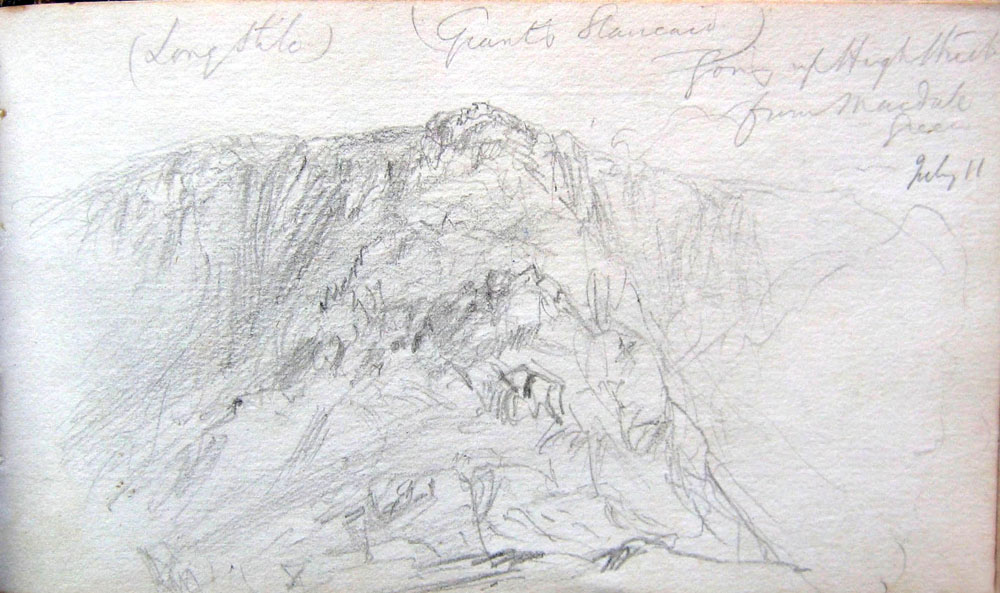 (Long Stile) (Giant's Staircase)
Going up High Street
from Mardale
Green
July 11